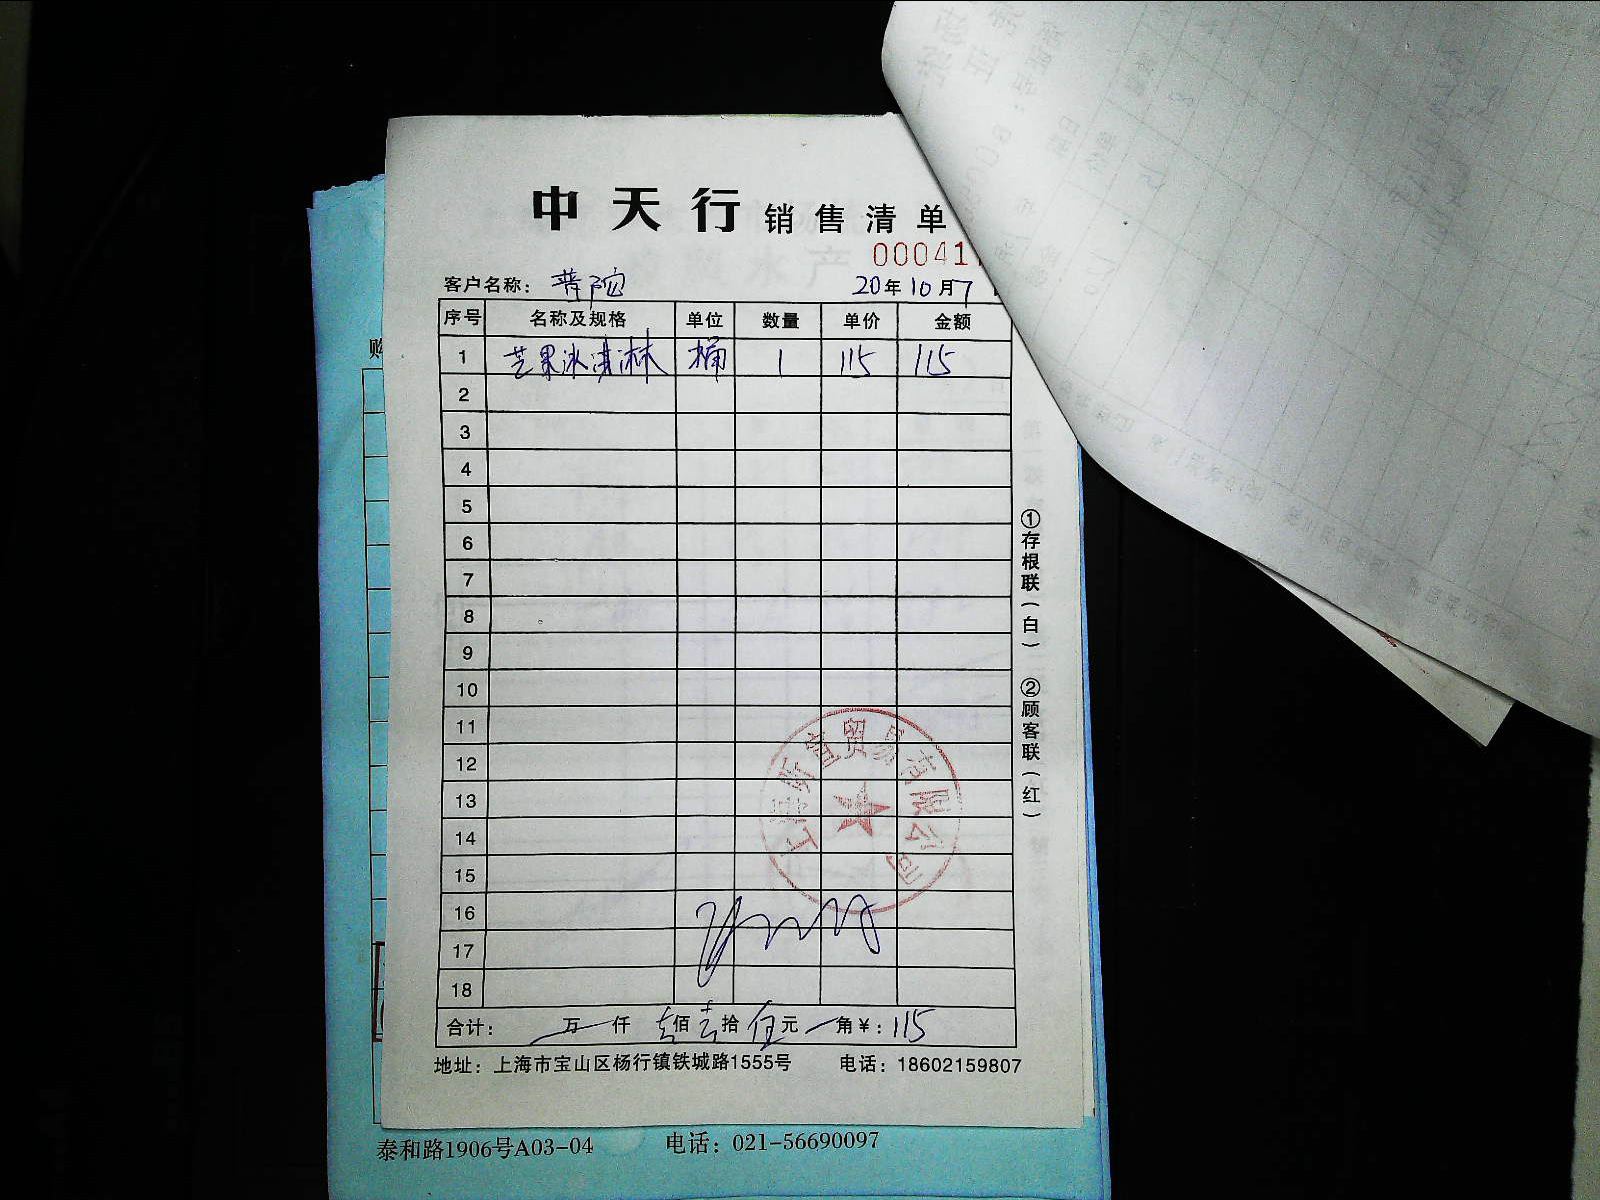 中天行 销售清单
00041
客户名称： 普陀 20年10月7
序号 名称及规格 单位 数量 单价 金额
1 芒果冰淇淋 桶 1 115 115
2
3
4
5
6
7
8
9
10
11
12
13
14
15
16
17
18
合计： 万 仟 壹佰壹拾伍元 角￥：115
地址：上海市宝山区杨行镇铁城路1555号 电话：18602159807
①存根联（白） ②顾客联（红）
贸易有限公司
购
泰和路1906号A03-04 电话：021-56690097